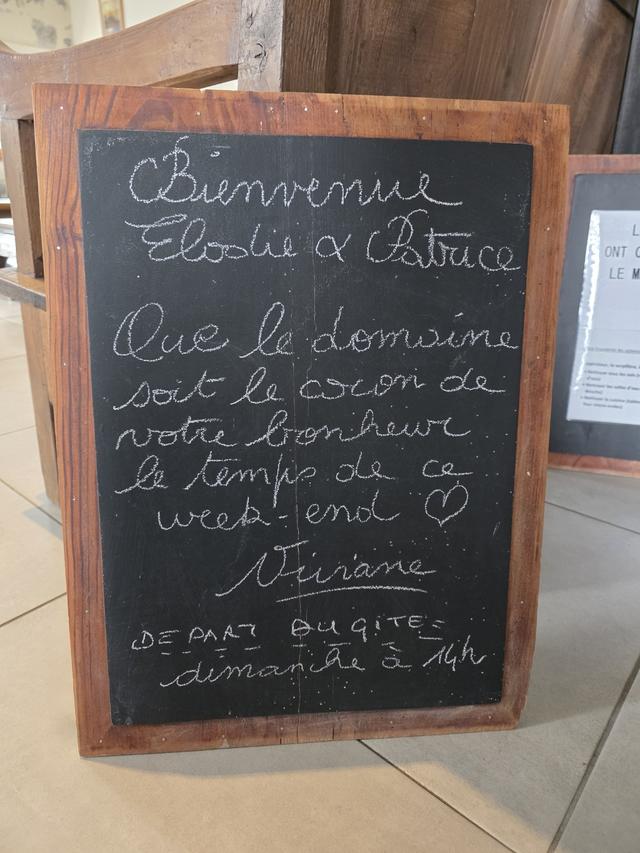 Bienvenue
Elodie & Patrice
Que le domaine
soit le cocon de
votre bonheur
le temps de ce
week-end ♡
Viviane
DEPART DU GITE =
dimanche à 14h
L
ONT
LE M